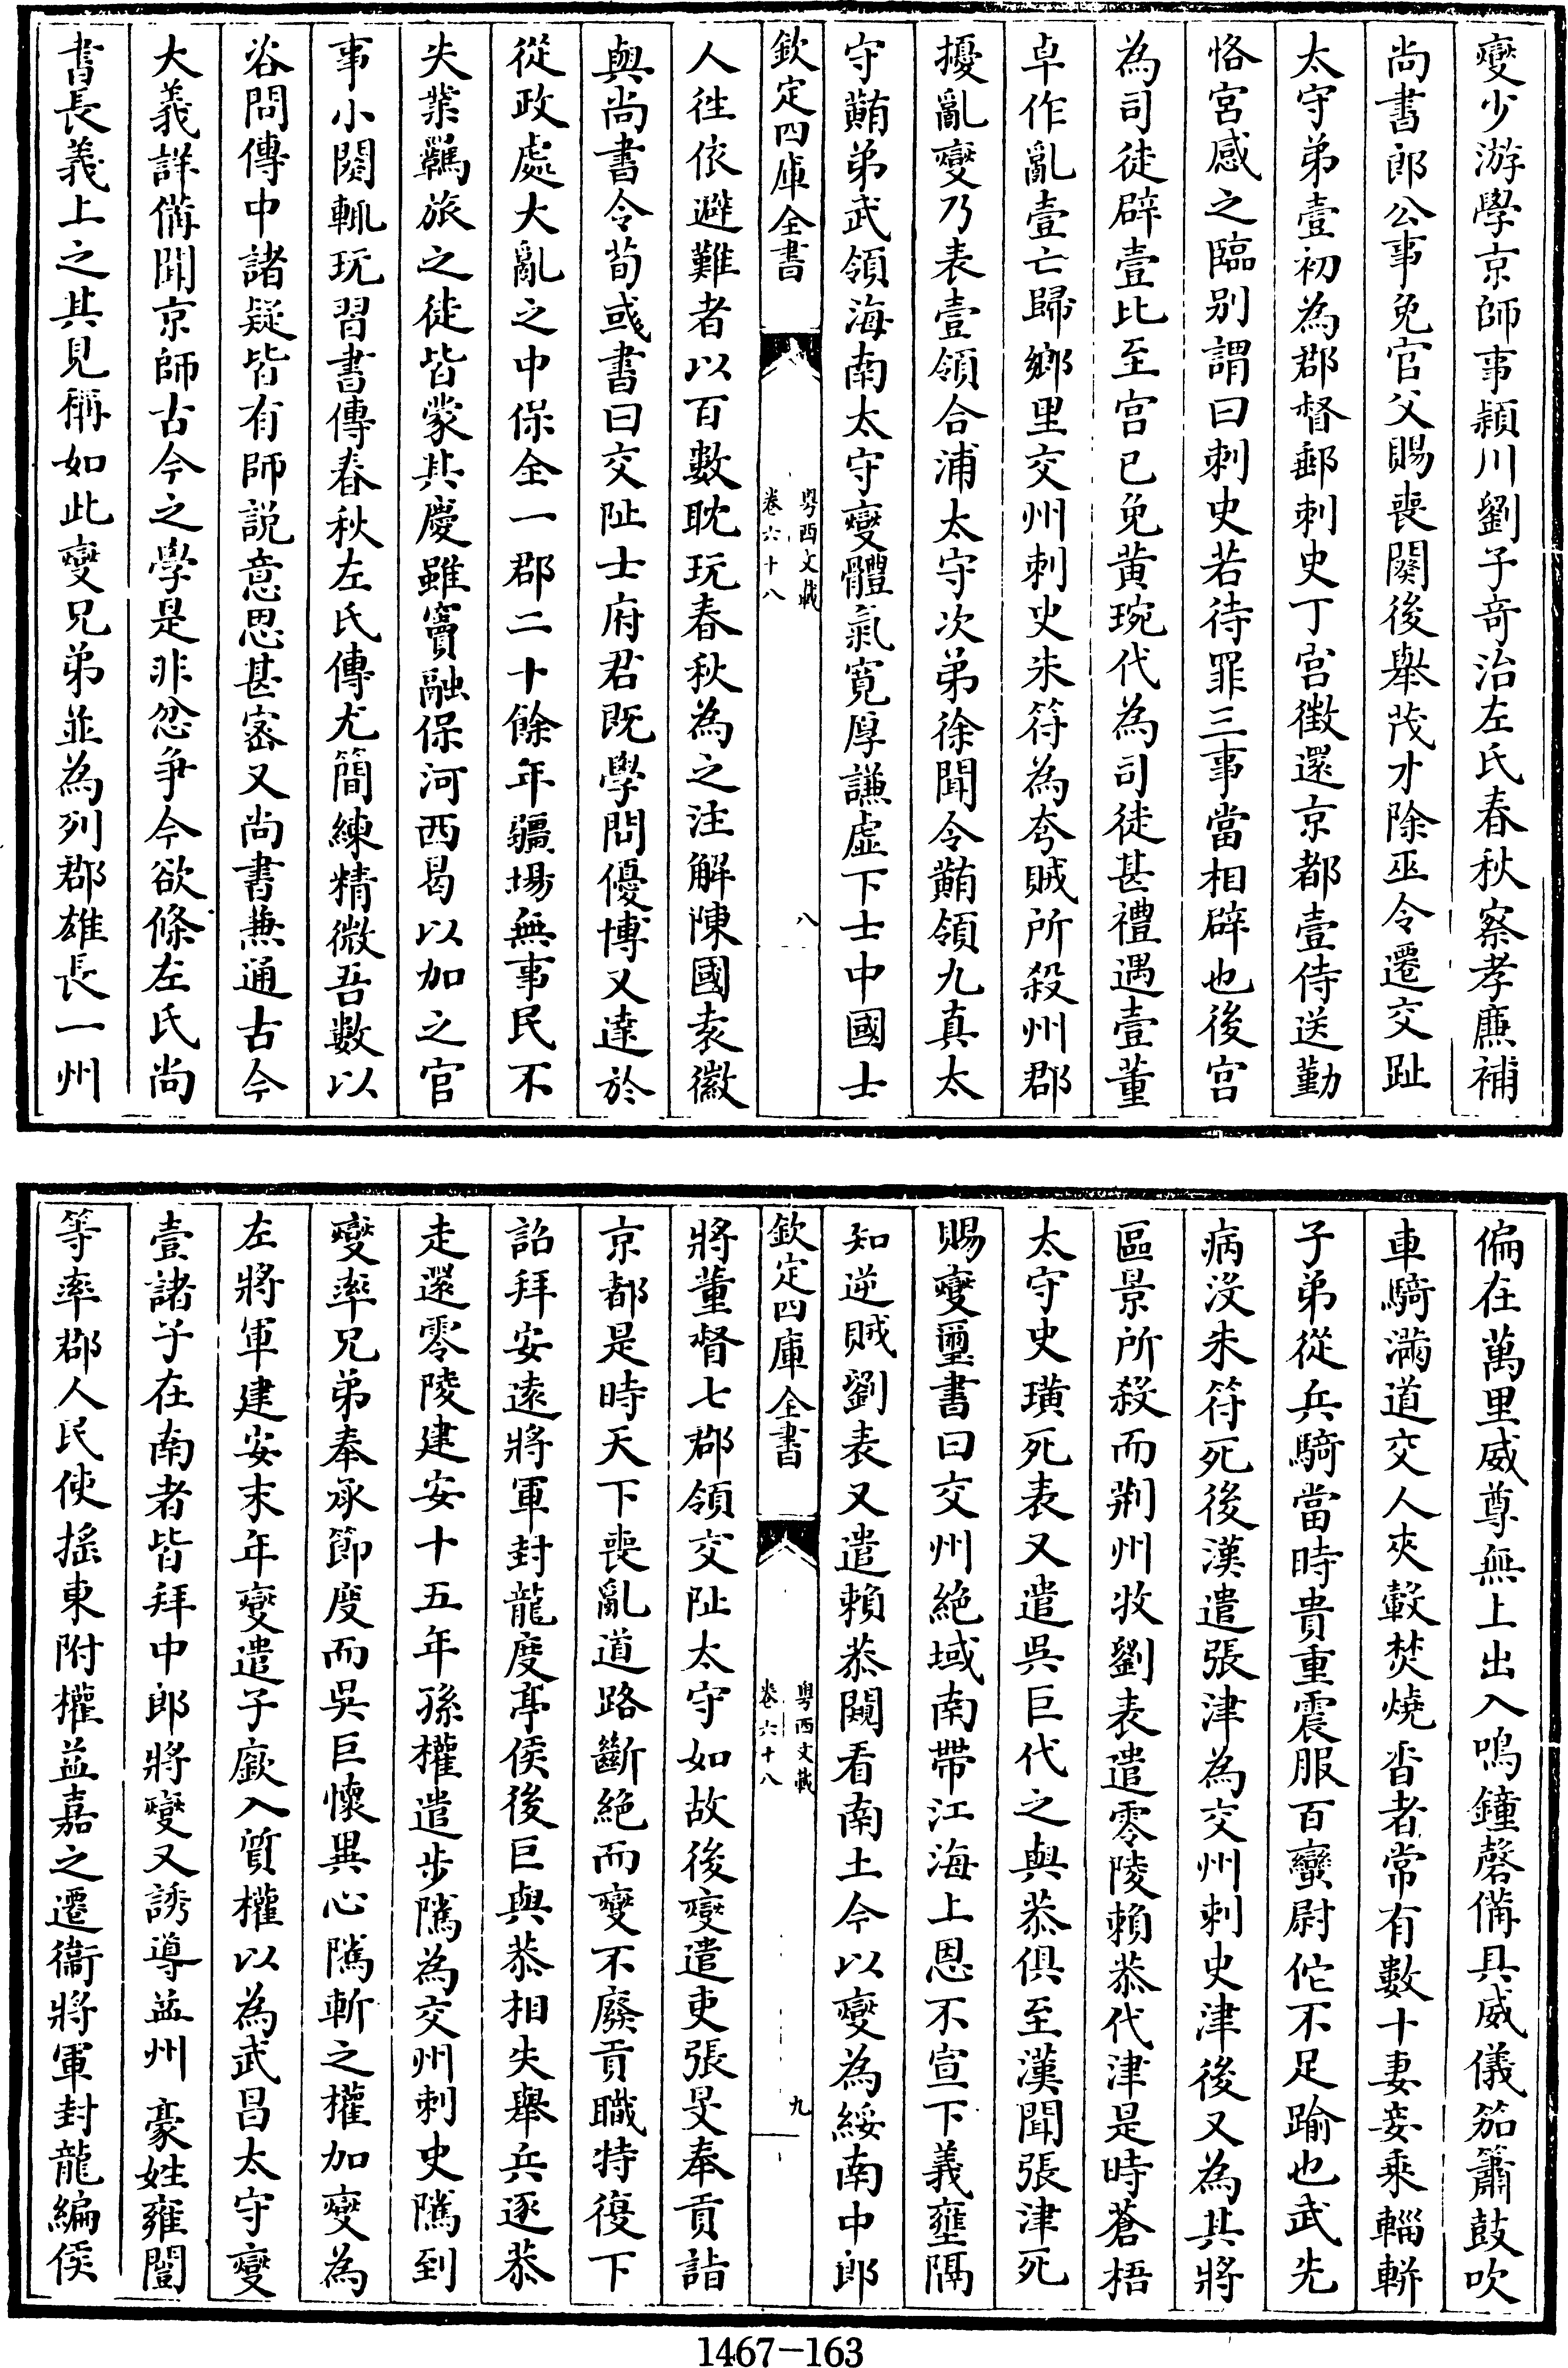 燮少游學京師事頴川劉子竒治左氏春秋察孝廉補
尚書郎公事免官父賜喪闋後舉茂才除巫令遷交趾
太守弟壹初為郡督郵刺史丁宮徵還京都壹侍送勤
恪宮感之臨别謂曰刺史若待罪三事當相辟也後宮
為司徒辟壹比至宫已免黄琬代為司徒甚禮遇壹董
卓作亂壹亡歸鄉里交州刺史朱符為夸賊所殺州郡
擾亂燮乃表壹領合浦太守次弟徐聞令䵋領九真太
守䵋弟武領海南太守燮體氣寛厚謙虚下士中國士
欽定四庫全書
粤西文載
卷六十八
八
人往依避難者以百數耽玩春秋為之注解陳國袁徽
與尚書令荀彧書曰交阯士府君既學問優博又達於
從政處大亂之中保全一郡二十餘年疆場無事民不
失業羈旅之徒皆蒙其慶雖竇融保河西曷以加之官
事小闋輒玩習書傳春秋左氏傳尤簡練精微吾數以
咨問傳中諸疑皆有師説意思甚宻又尚書兼通古今
大義詳備聞京師古今之學是非忿爭今欲條左氏尚
書長義上之其見稱如此燮兄弟並為列郡雄長一州
偏在萬里威尊無上出入鳴鐘磬備具威儀笳簫鼓吹
車騎滿道交人夾轂焚燒香者常有數十妻妾乘輜軿
子弟從兵騎當時貴重震服百蠻尉佗不足踰也武先
病沒朱符死後漢遣張津為交州刺史津後又為其將
區景所殺而荆州牧劉表遣零陵賴恭代津是時蒼梧
太守史璜死表又遣吳巨代之與恭俱至漢聞張津死
賜燮璽書曰交州絶域南帶江海上恩不宣下義壅隔
知逆賊劉表又遣賴恭闚看南土今以燮為綏南中郎
欽定四庫全書
粤西文載
卷六十八
九
將董督七郡領交阯太守如故後燮遣吏張旻奉貢詣
京都是時天下喪亂道路斷絶而燮不廢貢職特復下
詔拜安逺將軍封龍度亭侯後巨與恭相失舉兵逐恭
走還零陵建安十五年孫權遣步隲為交州刺史隲到
燮率兄弟奉承節度而吳巨懷異心隲斬之權加燮為
左將軍建安末年燮遣子廞入質權以為武昌太守燮
壹諸子在南者皆拜中郎將燮又誘導益州 豪姓雍闓
等率郡人民使揺東附權益嘉之遷衞將軍封龍編侯
1467-163